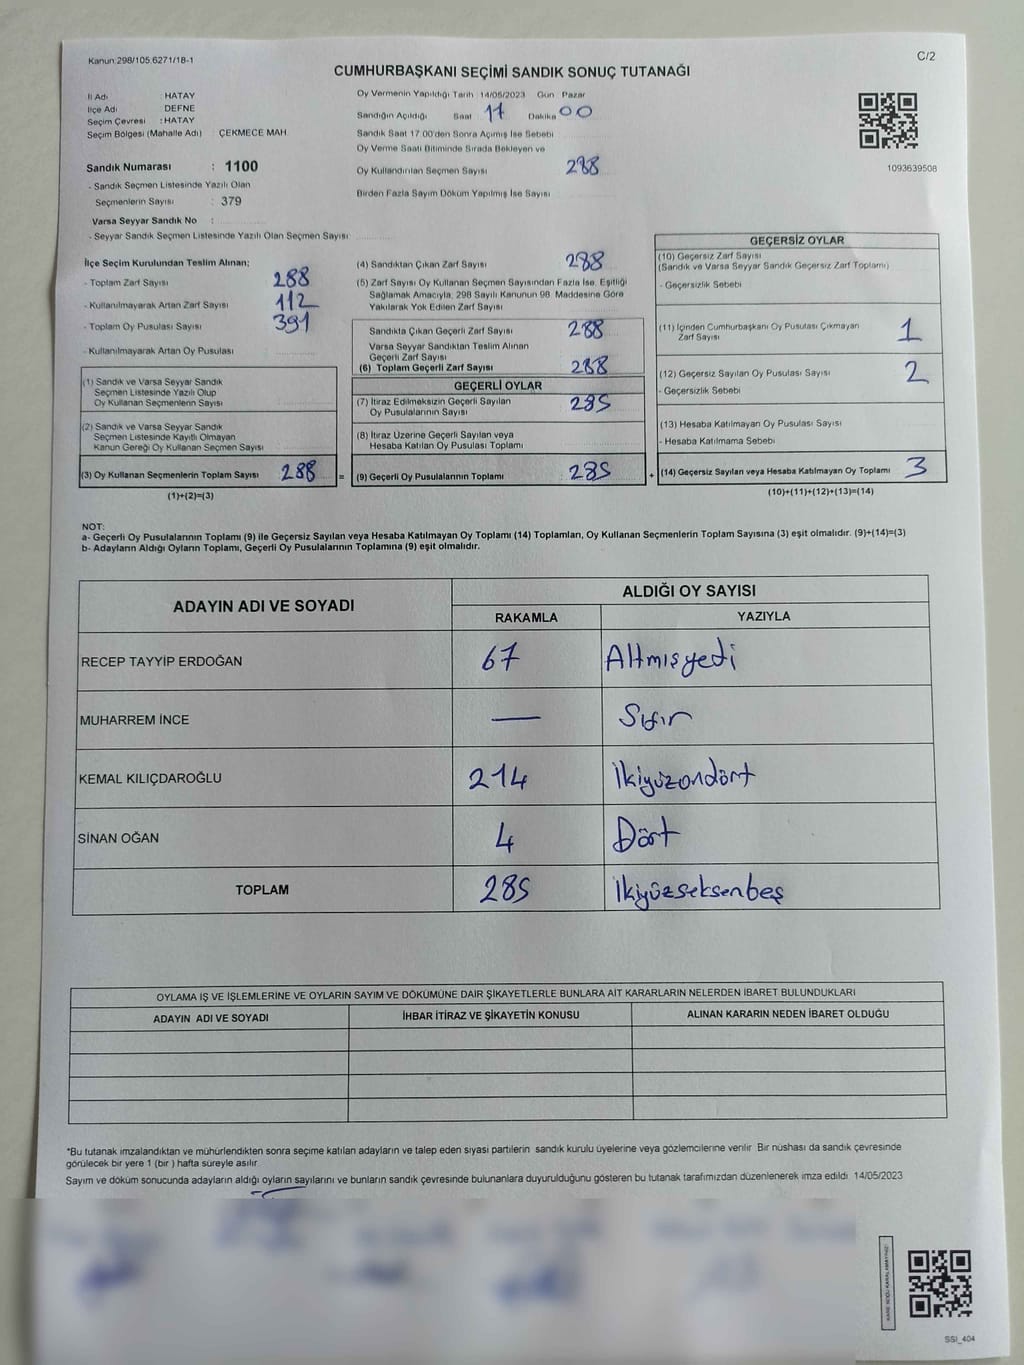 Kanun:298/105.6271/18-1
C/2
CUMHURBAŞKANI SEÇİMİ SANDIK SONUÇ TUTANAĞI
İl Adı : HATAY
İlçe Adı : DEFNE
Seçim Çevresi : HATAY
Seçim Bölgesi (Mahalle Adı) : ÇEKMECE MAH
Sandık Numarası : 1100
- Sandık Seçmen Listesinde Yazılı Olan
Seçmenlerin Sayısı : 379
Varsa Seyyar Sandık No :
- Seyyar Sandık Seçmen Listesinde Yazılı Olan Seçmen Sayısı
Oy Vermenin Yapıldığı Tarih 14/05/2023 Gün Pazar
Sandığın Açıldığı Saat 17 Dakika 00
Sandık Saat 17.00'den Sonra Açımış İse Sebebi
Oy Verme Saati Bitiminde Sırada Bekleyen ve
Oy Kullandırılan Seçmen Sayısı 288
Birden Fazla Sayım Döküm Yapılmış İse Sayısı
1093639508
İlçe Seçim Kurulundan Teslim Alınan;
- Toplam Zarf Sayısı 288
- Kullanılmayarak Artan Zarf Sayısı 112
- Toplam Oy Pusulası Sayısı 391
- Kullanılmayarak Artan Oy Pusulası
(1) Sandık ve Varsa Seyyar Sandık
Seçmen Listesinde Yazılı Olup
Oy Kullanan Seçmenlerin Sayısı
(2) Sandık ve Varsa Seyyar Sandık
Seçmen Listesinde Kayıtlı Olmayan
Kanun Gereği Oy Kullanan Seçmen Sayısı
(3) Oy Kullanan Seçmenlerin Toplam Sayısı 288 =
(1)+(2)=(3)
(4) Sandıktan Çıkan Zarf Sayısı 288
(5) Zarf Sayısı Oy Kullanan Seçmen Sayısından Fazla İse, Eşitliği
Sağlamak Amacıyla, 298 Sayılı Kanunun 98. Maddesine Göre
Yakılarak Yok Edilen Zarf Sayısı
Sandıkta Çıkan Geçerli Zarf Sayısı 288
Varsa Seyyar Sandıktan Teslim Alınan
Geçerli Zarf Sayısı
(6) Toplam Geçerli Zarf Sayısı 288
GEÇERLİ OYLAR
(7) İtiraz Edilmeksizin Geçerli Sayılan
Oy Pusulalarının Sayısı 285
(8) İtiraz Üzerine Geçerli Sayılan veya
Hesaba Katılan Oy Pusulası Toplamı
(9) Geçerli Oy Pusulalarının Toplamı 285 +
GEÇERSİZ OYLAR
(10) Geçersiz Zarf Sayısı
(Sandık ve Varsa Seyyar Sandık Geçersiz Zarf Toplamı)
- Geçersizlik Sebebi
(11) İçinden Cumhurbaşkanı Oy Pusulası Çıkmayan
Zarf Sayısı 1
(12) Geçersiz Sayılan Oy Pusulası Sayısı 2
- Geçersizlik Sebebi
(13) Hesaba Katılmayan Oy Pusulası Sayısı
- Hesaba Katılmama Sebebi
(14) Geçersiz Sayılan veya Hesaba Katılmayan Oy Toplamı 3
(10)+(11)+(12)+(13)=(14)
NOT:
a- Geçerli Oy Pusulalarının Toplamı (9) ile Geçersiz Sayılan veya Hesaba Katılmayan Oy Toplamı (14) Toplamları, Oy Kullanan Seçmenlerin Toplam Sayısına (3) eşit olmalıdır. (9)+(14)=(3)
b- Adayların Aldığı Oyların Toplamı, Geçerli Oy Pusulalarının Toplamına (9) eşit olmalıdır.
ADAYIN ADI VE SOYADI ALDIĞI OY SAYISI
RAKAMLA YAZIYLA
RECEP TAYYİP ERDOĞAN 67 Altmışyedi
MUHARREM İNCE — Sıfır
KEMAL KILIÇDAROĞLU 214 İkiyüzondört
SİNAN OĞAN 4 Dört
TOPLAM 285 İkiyüzseksenbeş
OYLAMA İŞ VE İŞLEMLERİNE VE OYLARIN SAYIM VE DÖKÜMÜNE DAİR ŞİKAYETLERLE BUNLARA AİT KARARLARIN NELERDEN İBARET BULUNDUKLARI
ADAYIN ADI VE SOYADI İHBAR İTİRAZ VE ŞİKAYETİN KONUSU ALINAN KARARIN NEDEN İBARET OLDUĞU
*Bu tutanak imzalandıktan ve mühürlendikten sonra seçime katılan adayların ve talep eden siyasi partilerin sandık kurulu üyelerine veya gözlemcilerine verilir. Bir nüshası da sandık çevresinde
görülecek bir yere 1 (bir ) hafta süreyle asılır.
Sayım ve döküm sonucunda adayların aldığı oyların sayılarını ve bunların sandık çevresinde bulunanlara duyurulduğunu gösteren bu tutanak tarafımızdan düzenlenerek imza edildi. 14/05/2023
SSI_404